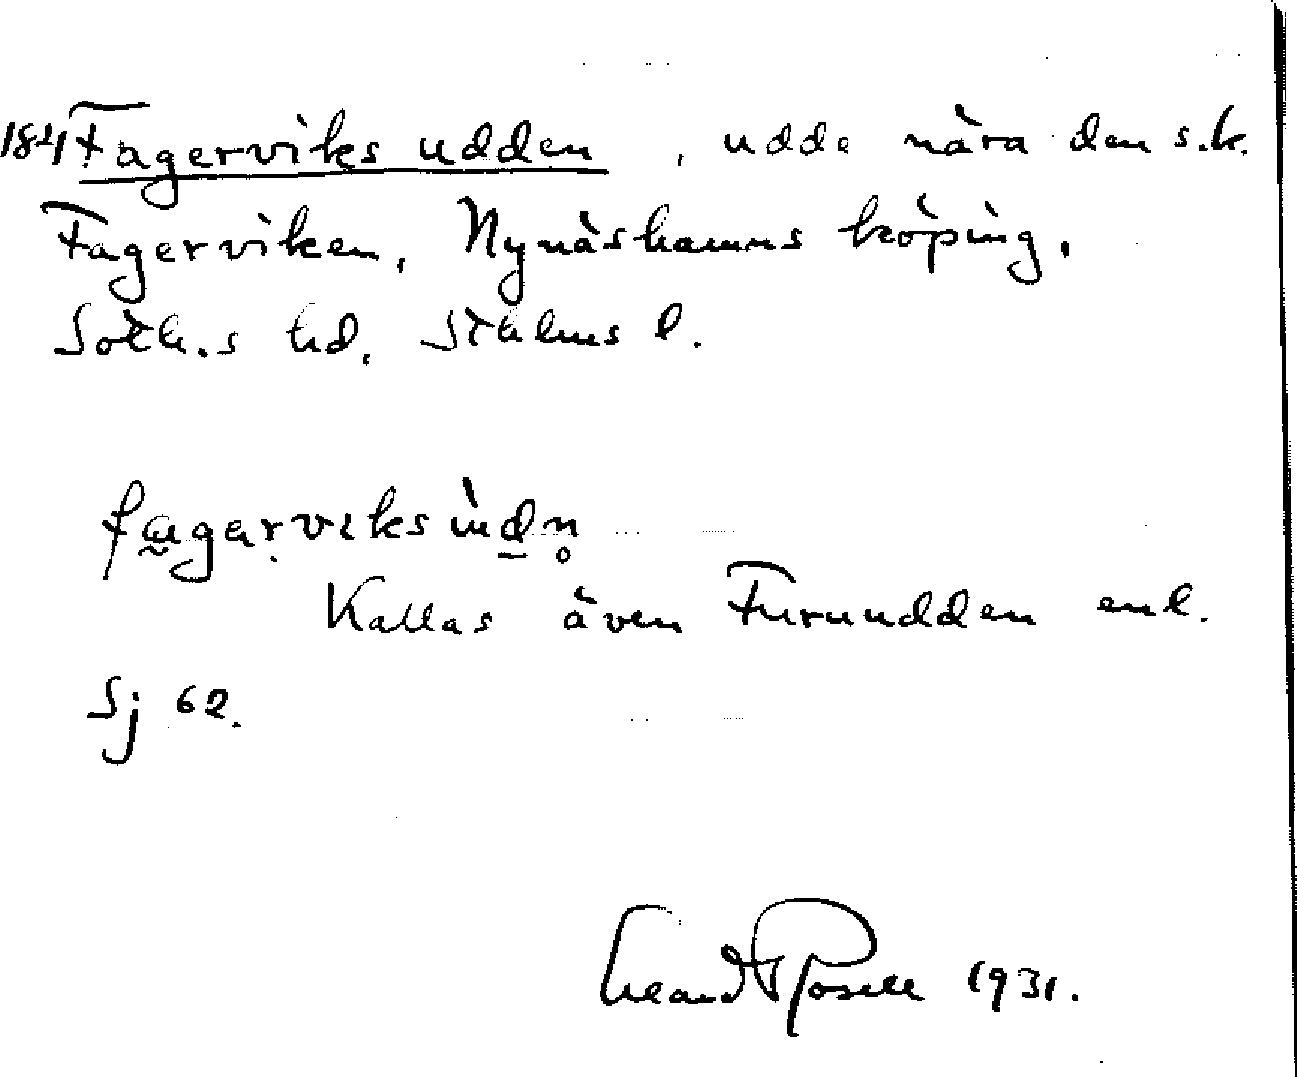 184 Fagerviks udden, udde nära den s.k.
Fagerviken, Nynäshamns köping,
Soth.s hd. Sthlms l.
fagarviks ùdn̥
Kallas även Furuudden enl.
Sj 62.
Rosell 1931.